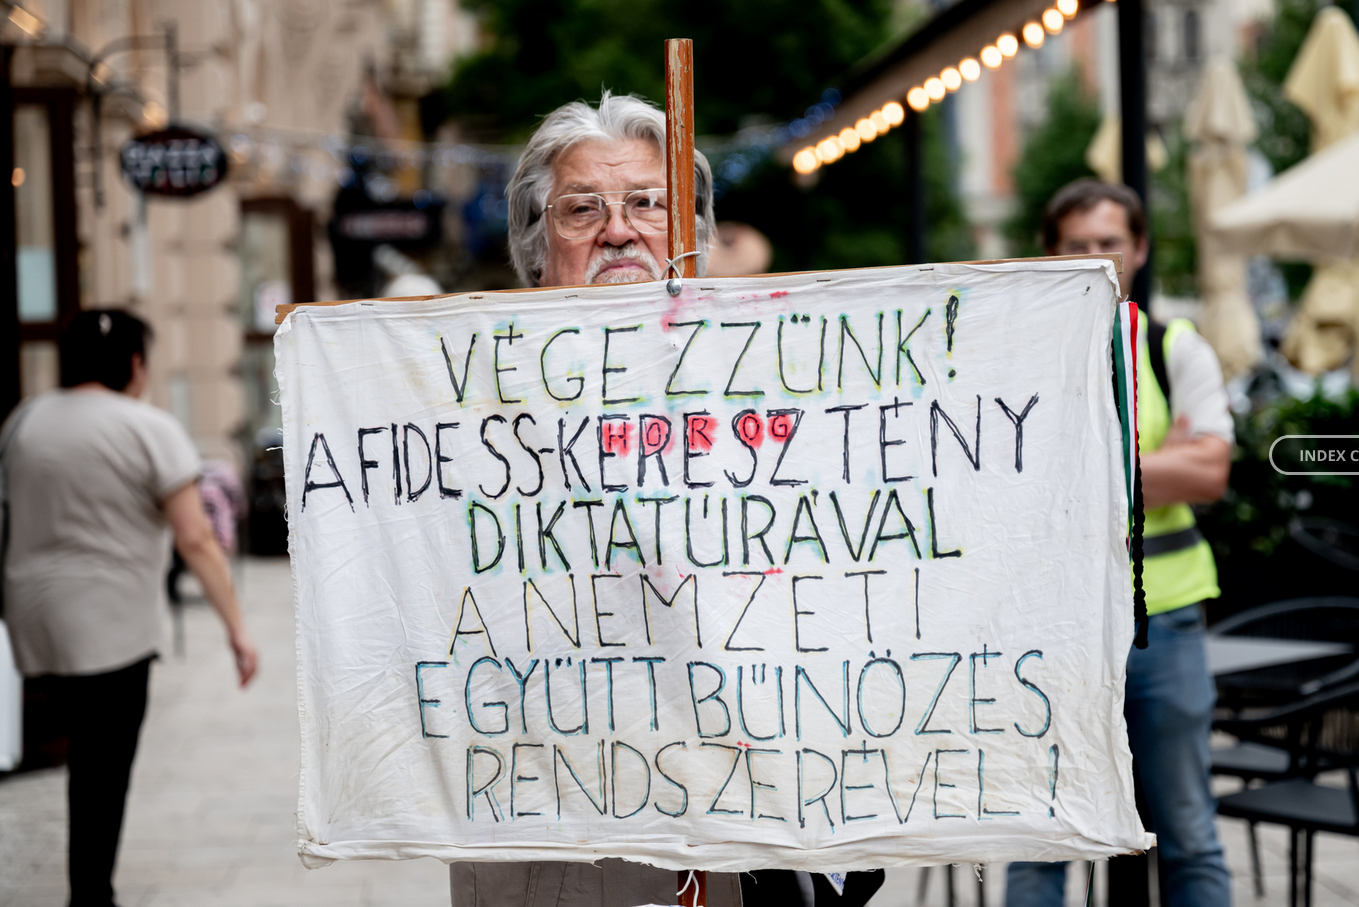 VÉGEZZÜNK!
A FIDESS-KERESZTÉNY
HOROG
INDEX C
DIKTATÚRÁVAL
A NEMZETI
EGYÜTT BŰNÖZÉS
RENDSZERÉVEL!